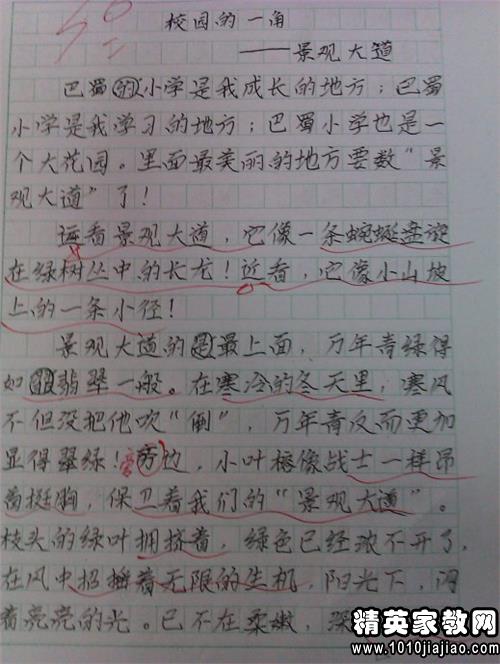 校园的一角
——景观大道
巴蜀的小学是我成长的地方；巴蜀
小学是我学习的地方；巴蜀小学也是一
个大花园。里面最美丽的地方要数“景
观大道”了！
远看景观大道，它像一条蜿蜒盘旋
在绿树丛中的长龙！近看，它像小山坡
上的一条小径！
景观大道的最上面，万年青绿得
如翡翠一般。在寒冷的冬天里，寒风
不但没把他吹“倒”，万年青反而更加
显得翠绿！旁边，小叶榕像战士一样昂
首挺胸，保卫着我们的“景观大道”。
枝头的绿叶拥挤着，绿色已经浓不开了，
在风中招摇着无限的生机，阳光下，闪
着亮亮的光。已不在柔嫩，深
精英家教网
www.1010jiajiao.com